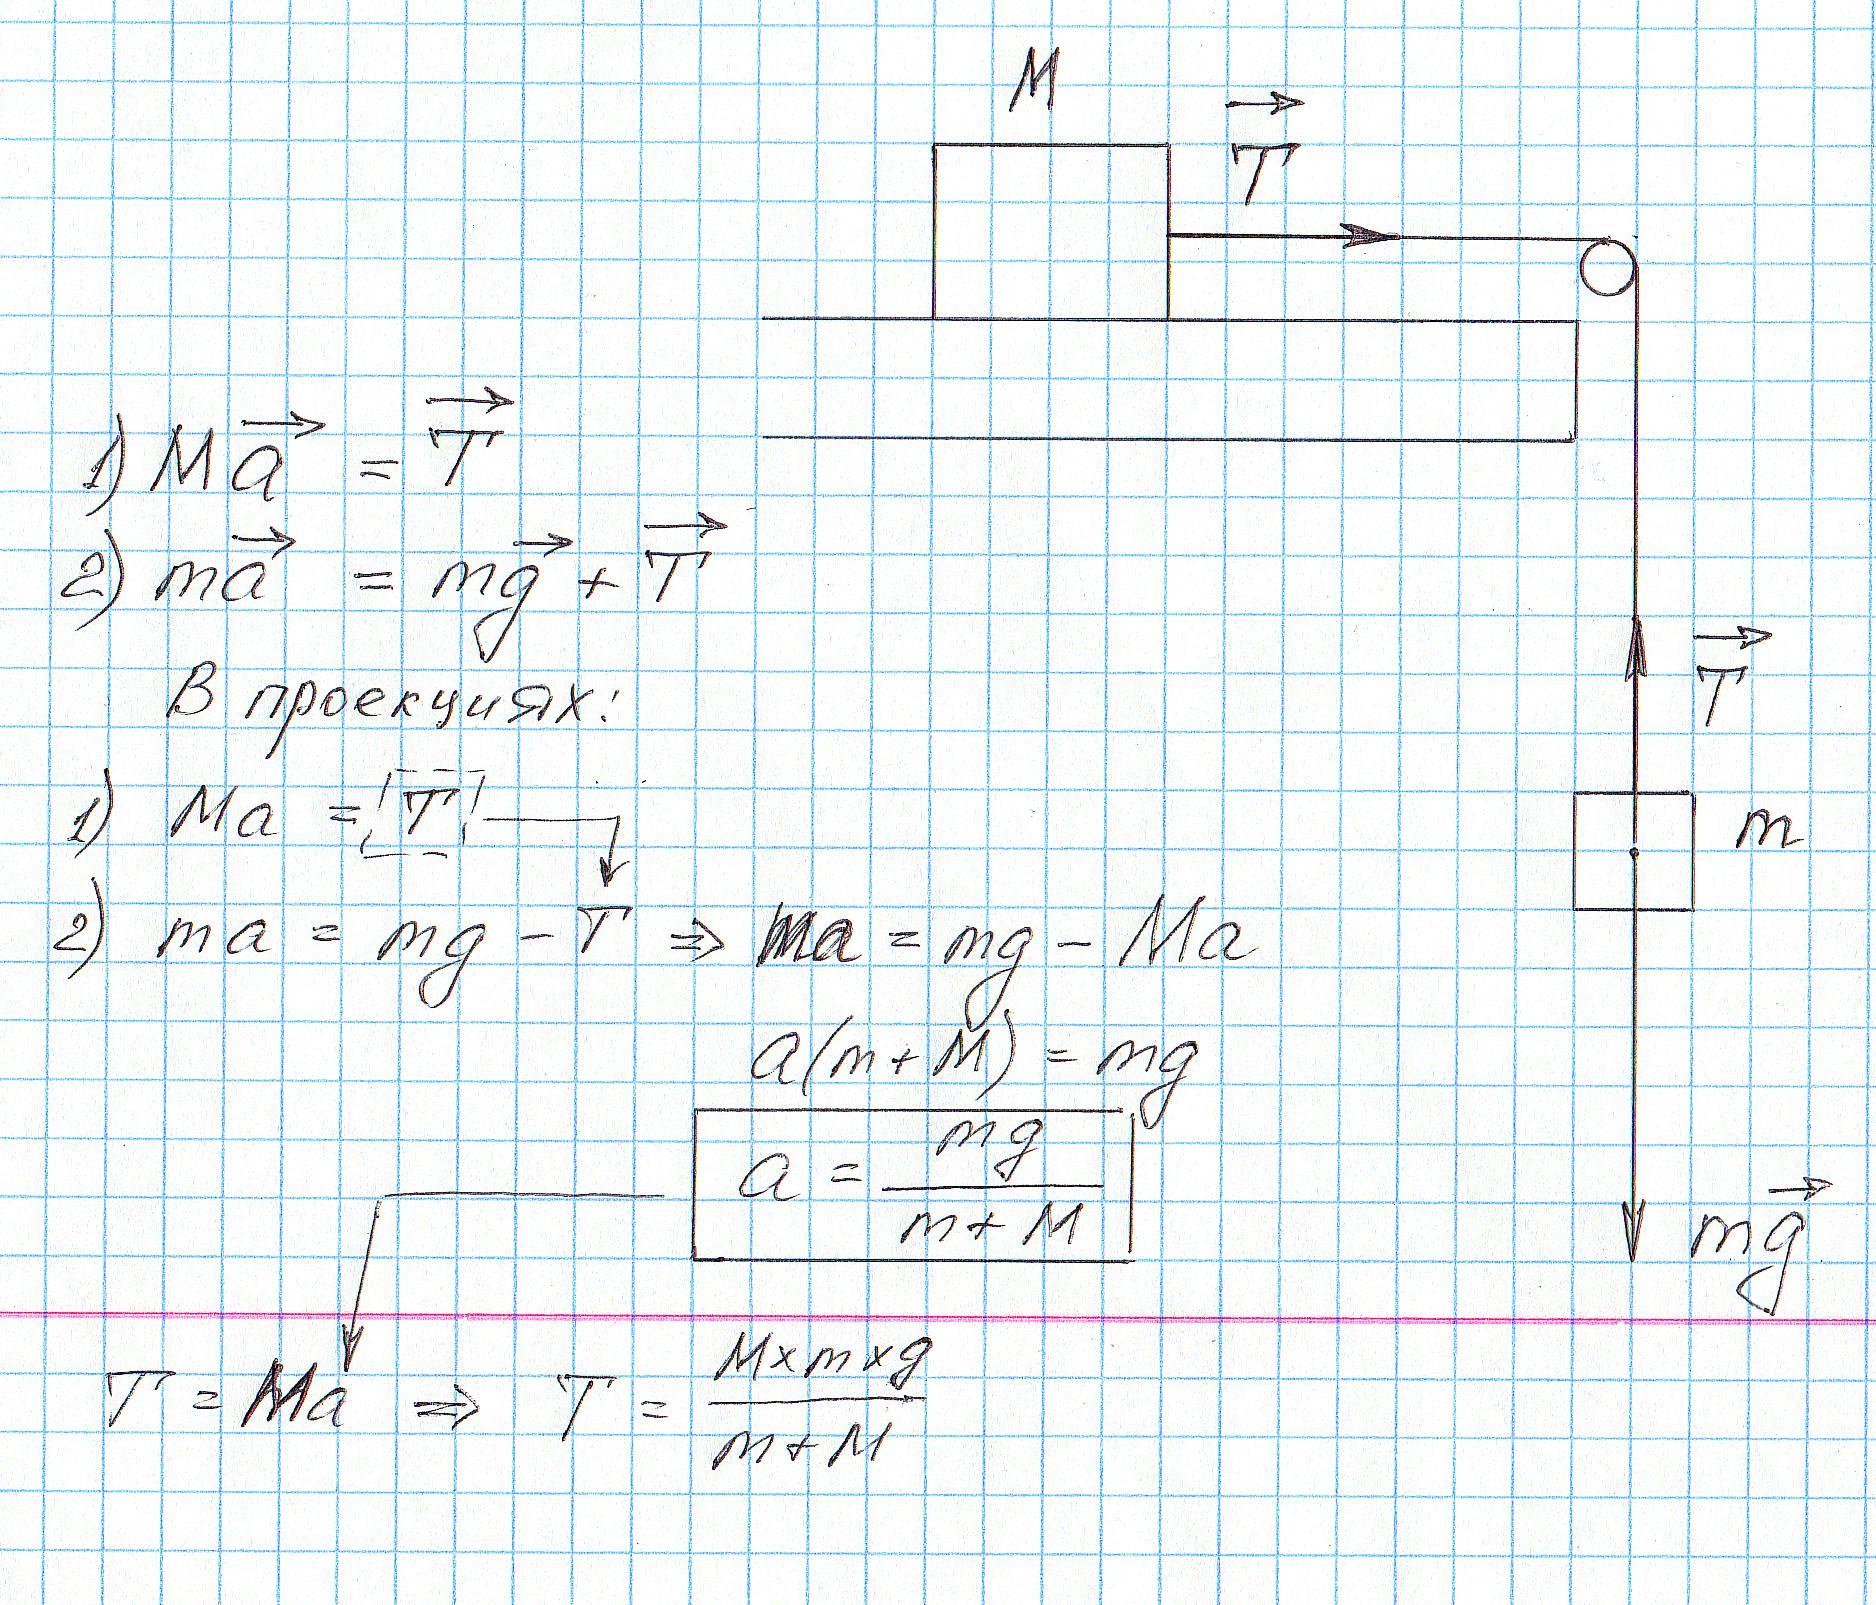 M
T⃗
1) Ma⃗ = T⃗
2) ma⃗ = mg⃗ + T⃗
В проекциях:
T⃗
1) Ma = T
m
2) ma = mg − T ⇒ ma = mg − Ma
a(m + M) = mg
a = mg / m + M
mg⃗
T = Ma ⇒ T = M×m×g / m + M